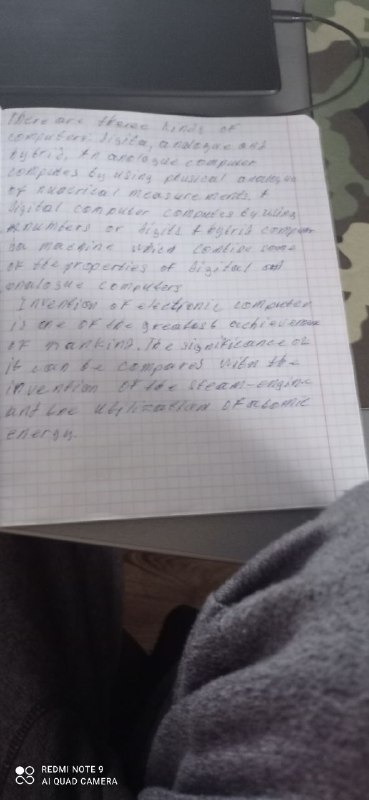 There are three kinds of
computers: digital, analogue and
hybrid. An analogue computer
computes by using physical analogue
of numerical measurements. A
digital computer computes by using
numbers or digits. A hybrid computer
is a machine which combine some
of the properties of digital and
analogue computers
Invention of electronic computer
is one of the greatest achievement
of mankind. The significance of
it can be compared with the
invention of the steam-engine
and the utilization of atomic
energy.
REDMI NOTE 9
AI QUAD CAMERA